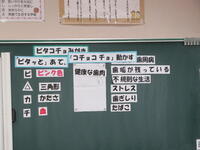 ピタコチョみがき
"ピタッと"あて、
"コチョコチョ"動かす
歯周病
健康な歯肉
ヒ ピンク色
△ 三角形
カ かたさ
チ 血
歯垢が残っている
不規則な生活
ストレス
歯ぎしり
たばこ